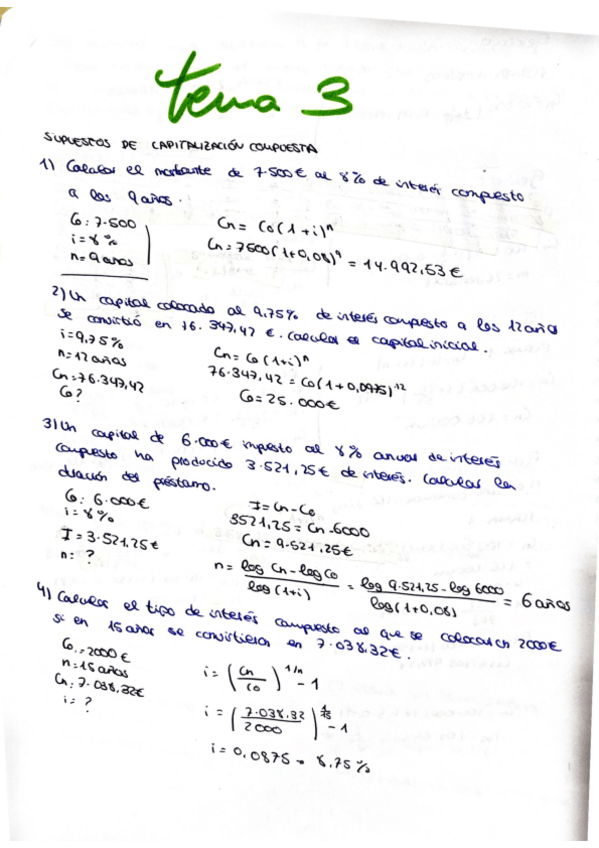 tema 3
SUPUESTOS DE CAPITALIZACIÓN COMPUESTA
1) Calcular el montante de 7.500€ al 8% de interés compuesto
a los 9 años.
Co: 7.500
i = 8%
n = 9 años
Cn = Co(1+i)ⁿ
Cn = 7500(1+0,08)⁹ = 14.992,53€
2) Un capital colocado al 9,75% de interés compuesto a los 12 años
se convirtió en 76.347,42€. Calcular el capital inicial.
i = 9,75%
n = 12 años
Cn = 76.347,42
Co?
Cn = Co(1+i)ⁿ
76.347,42 = Co(1+0,0975)¹²
Co = 25.000€
3) Un capital de 6.000€ impuesto al 8% anual de interés
compuesto ha producido 3.521,25€ de interés. Calcular la
duración del préstamo.
Co: 6.000€
i = 8%
I = 3.521,25€
n: ?
I = Cn - Co
3521,25 = Cn - 6000
Cn = 9.521,25€
n = log Cn - log Co / log (1+i) = log 9.521,25 - log 6000 / log (1+0,08) = 6 años
4) Calcular el tipo de interés compuesto al que se colocaron 2000€
si en 15 años se convirtieron en 7.038,32€.
Co = 2000€
n = 15 años
Cn: 7.038,32€
i = ?
i = (Cn / Co)^1/n - 1
i = (7.038,32 / 2000)^1/15 - 1
i = 0,0875 = 8,75%